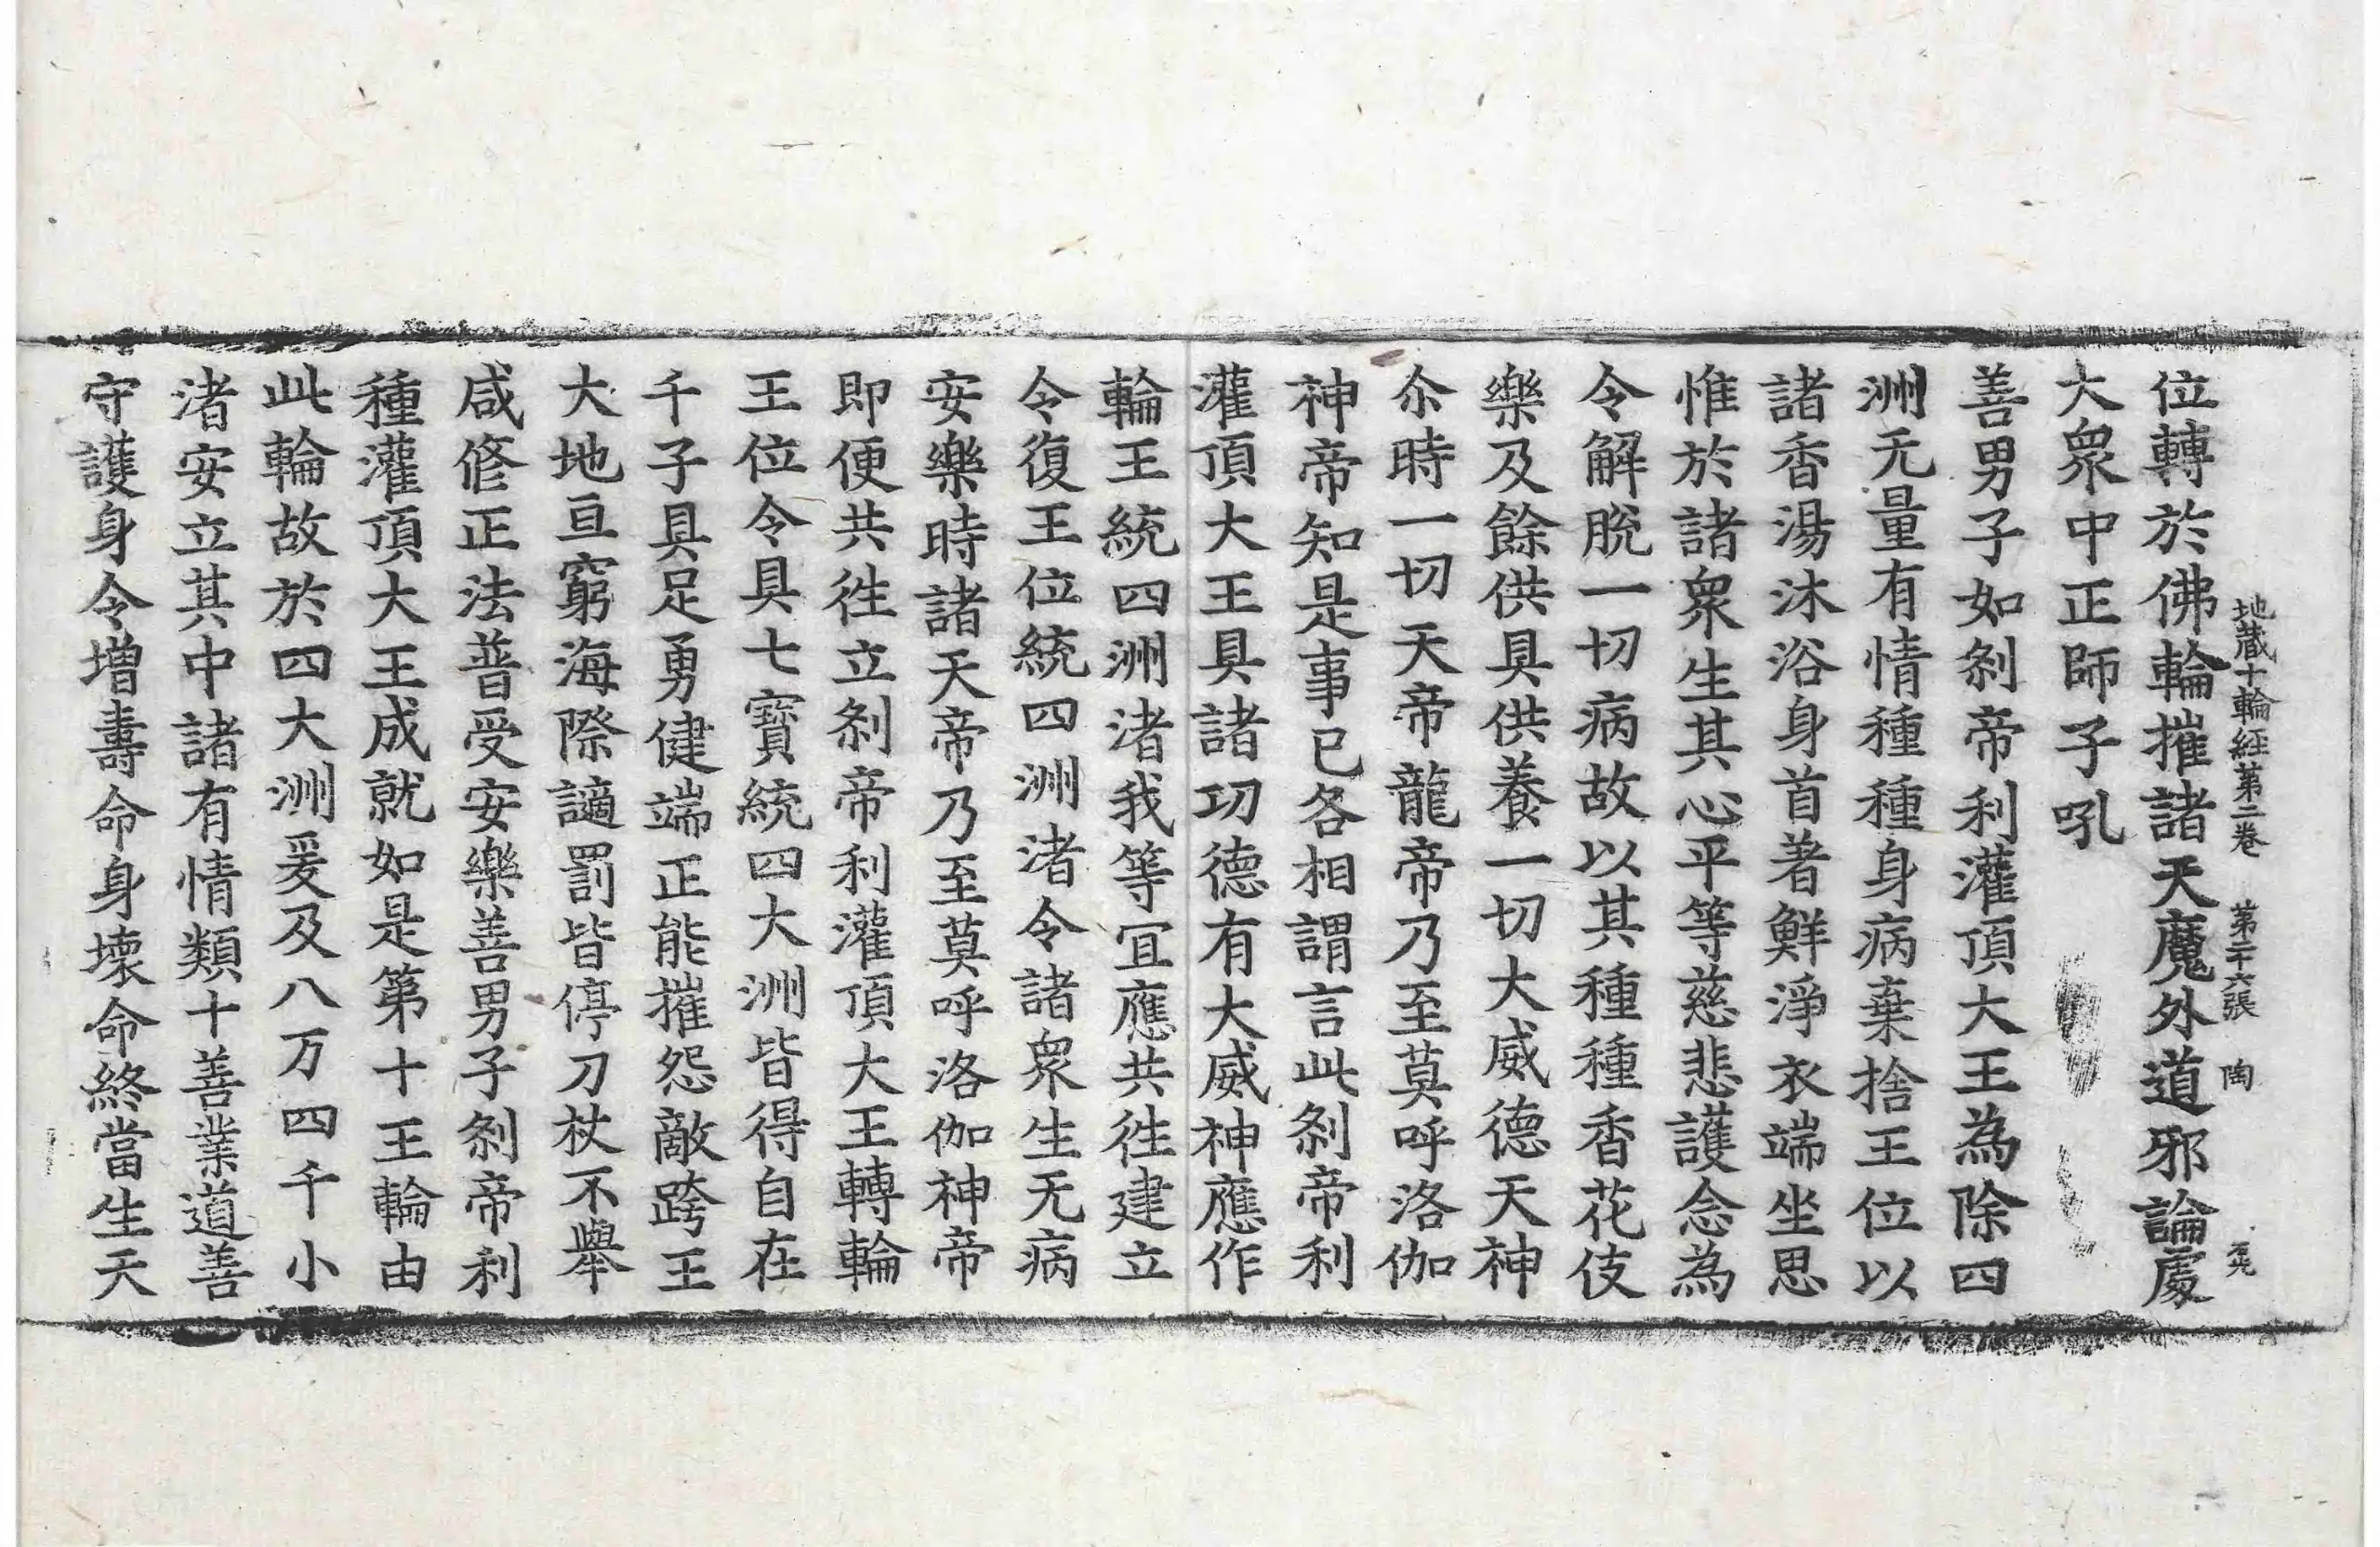 地蔵十輪経第二巻 第二十六張 陶
位轉於佛輪摧諸天魔外道邪論處
大衆中正師子吼
善男子如刹帝利灌頂大王為除四
洲无量有情種種身病棄捨王位以
諸香湯沐浴身首著鮮淨衣端坐思
惟於諸衆生其心平等慈悲護念為
令解脫一切病故以其種種香花伎
樂及餘供具供養一切大威德天神
尒時一切天帝龍帝乃至莫呼洛伽
神帝知是事已各相謂言此刹帝利
灌頂大王具諸功德有大威神應作
輪王統四洲渚我等宜應共徃建立
令復王位統四洲渚令諸衆生无病
安樂時諸天帝乃至莫呼洛伽神帝
即便共徃立刹帝利灌頂大王轉輪
王位令具七寶統四大洲皆得自在
千子具足勇健端正能摧怨敵跨王
大地亘窮海際謫罰皆停刀杖不舉
咸修正法普受安樂善男子刹帝利
種灌頂大王成就如是第十王輪由
此輪故於四大洲爰及八万四千小
渚安立其中諸有情類十善業道善
守護身令増壽命身壞命終當生天